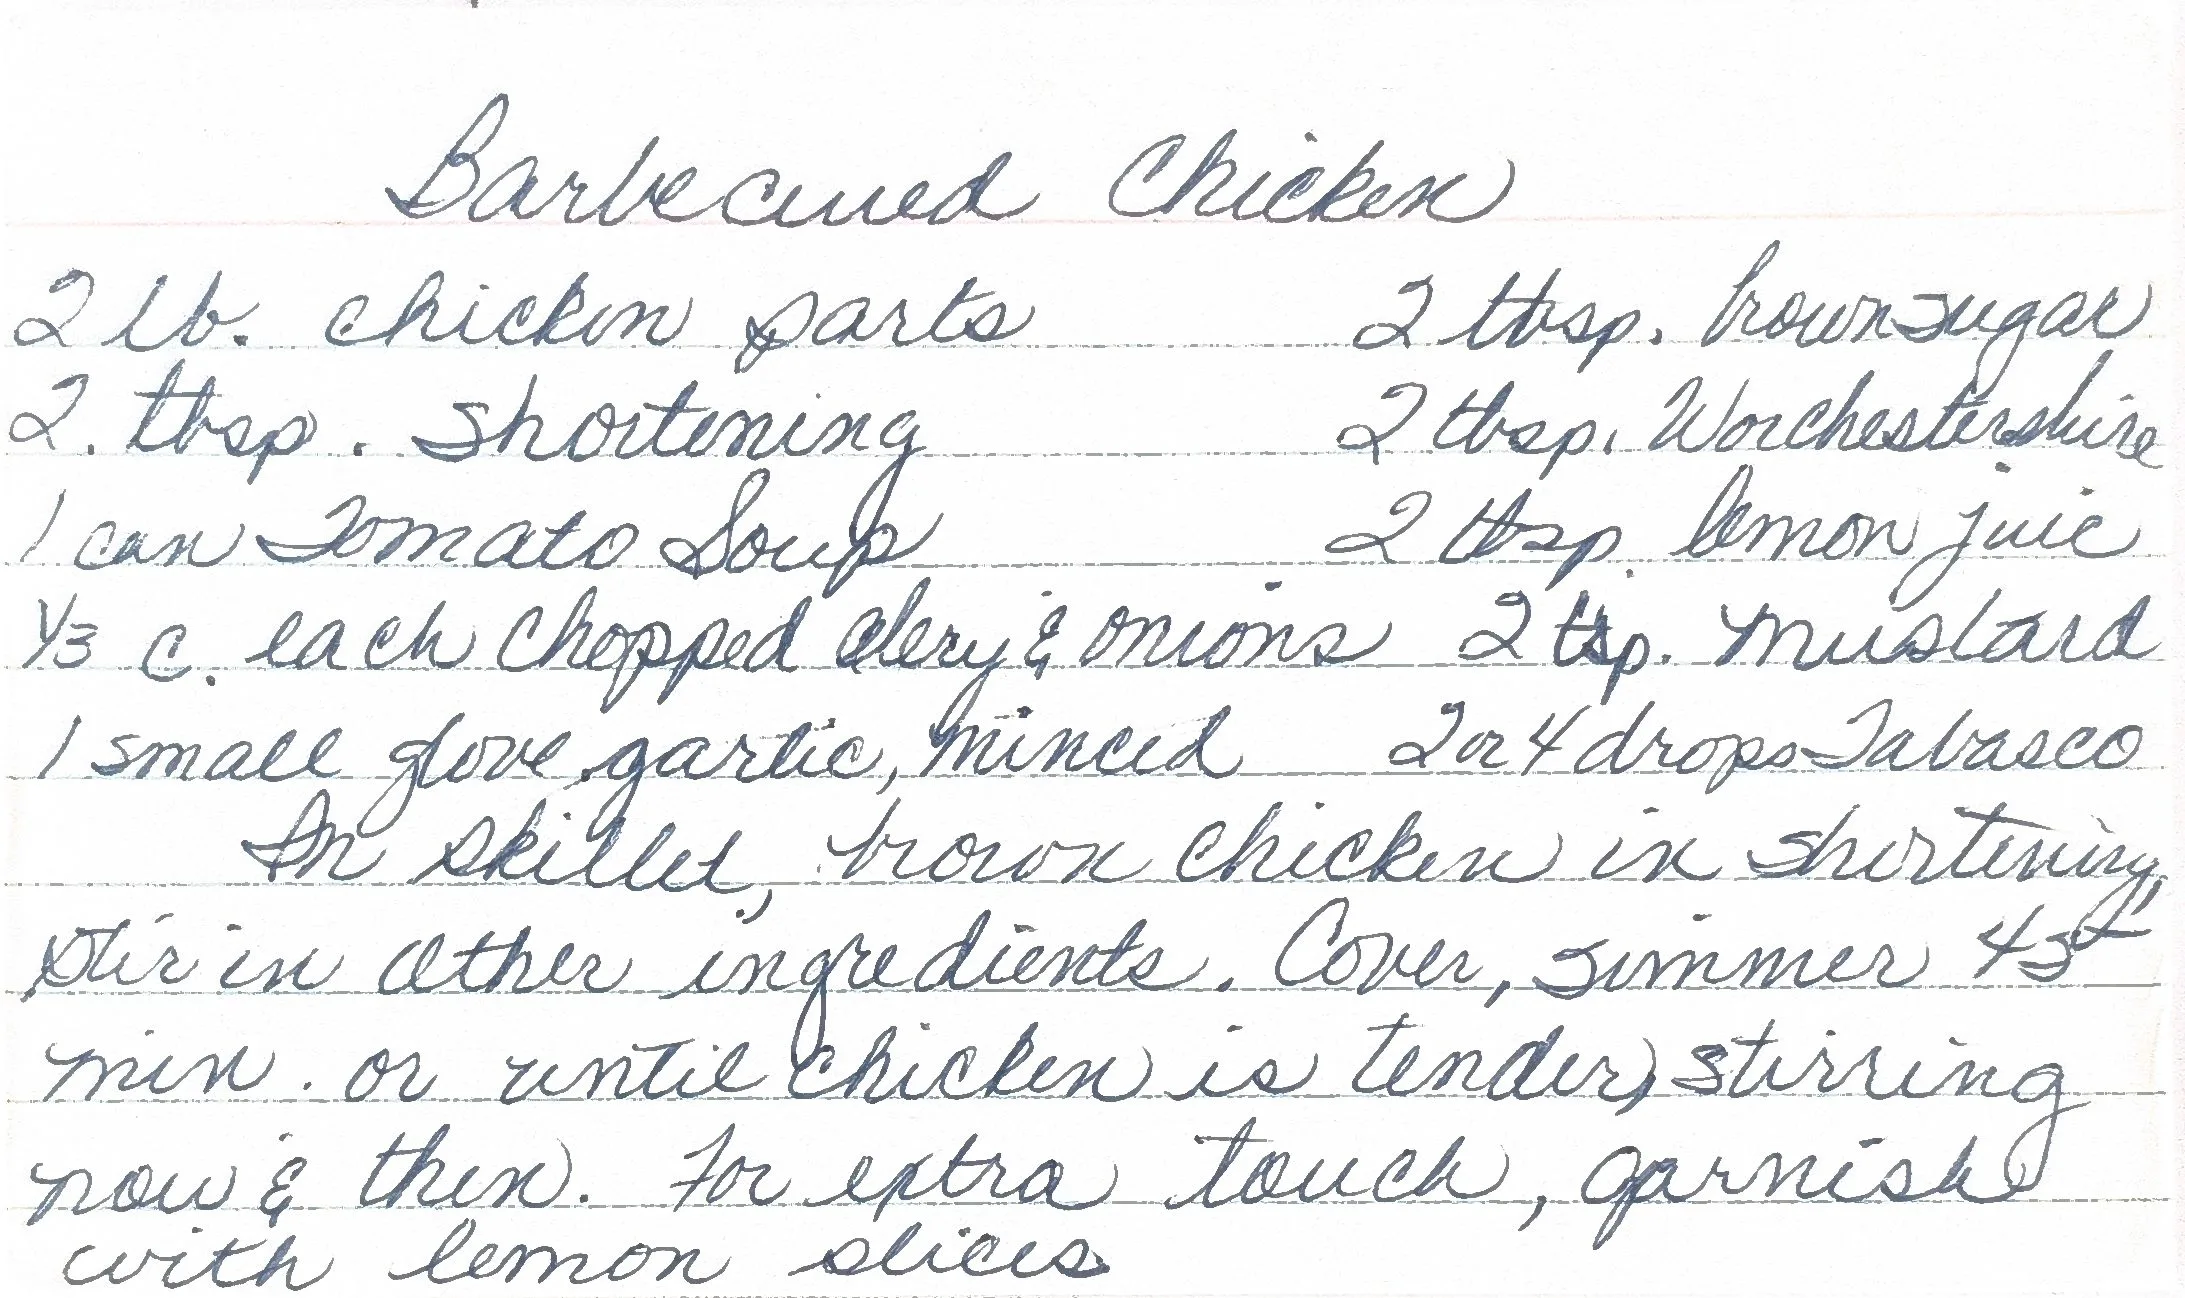 Barbecued Chicken
2 lb. chicken parts 2 tbsp. brown sugar
2. tbsp. shortening 2 tbsp. Worchestershire
1 can Tomato Soup 2 tbsp. lemon juic
1/3 c. each chopped celery & onions 2 tsp. mustard
1 small glove garlic, minced 2 or 4 drops Tabasco
In skillet, brown chicken in shortening,
stir in other ingredients. Cover, simmer 45
min. or until chicken is tender, stirring
now & then. For extra touch, garnish
with lemon slices